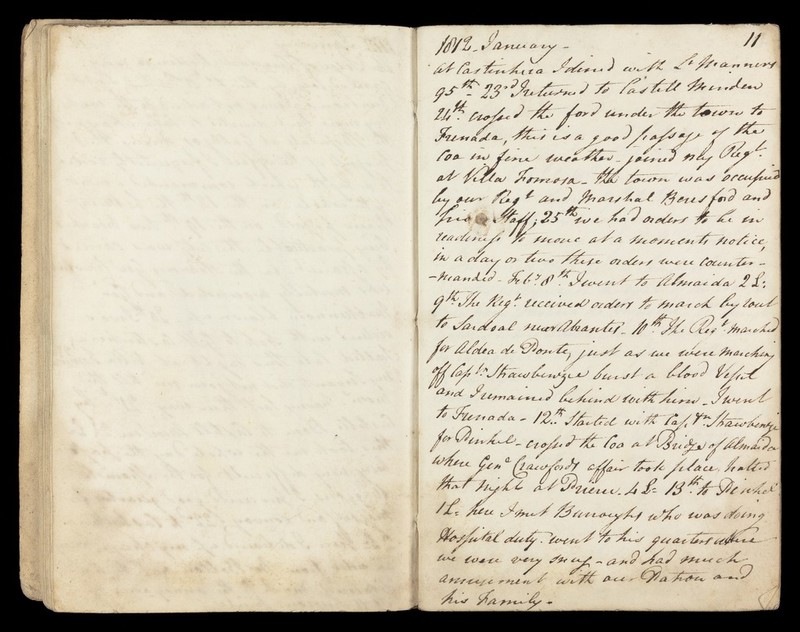 1812 - January - 11
at Castinhera I dined with Lt. Manners
95th - 23rd Returned to Castell Menden
24th crossed the ford under the town to
Frenada, this is a good passage of the
Coa in fine weather - joined my Regt.
at Villa Formosa - the town was occupied
by our Regt and Marshal Beresford and
Staff; 25th we had orders to be in
readiness to move at a moments notice,
in a day or two these orders were counter-
-manded - Feby. 8th I went to Almaida 2 L:
9th The Regt. received orders to march by rout
to Sardoal near Abrantes - 10th The Regt marched
for Aldea de Ponte, just as we were marching
off Captn. Strawbenzee burst a blood Vessel
and I remained behind with him - I went
to Frenada - 12th Started with Captn Strawbenzee
for Pinhel - crossed the Coa at Bridge of Almaida
where Genl Crawfords affair took place, halted
that night at 4 L - 13th to Pinhel
1 L - here I met Burroughs who was doing
Hospital duty - went to his quarters where
we were very snug - and had much
amusement with our Patron and
his Family -